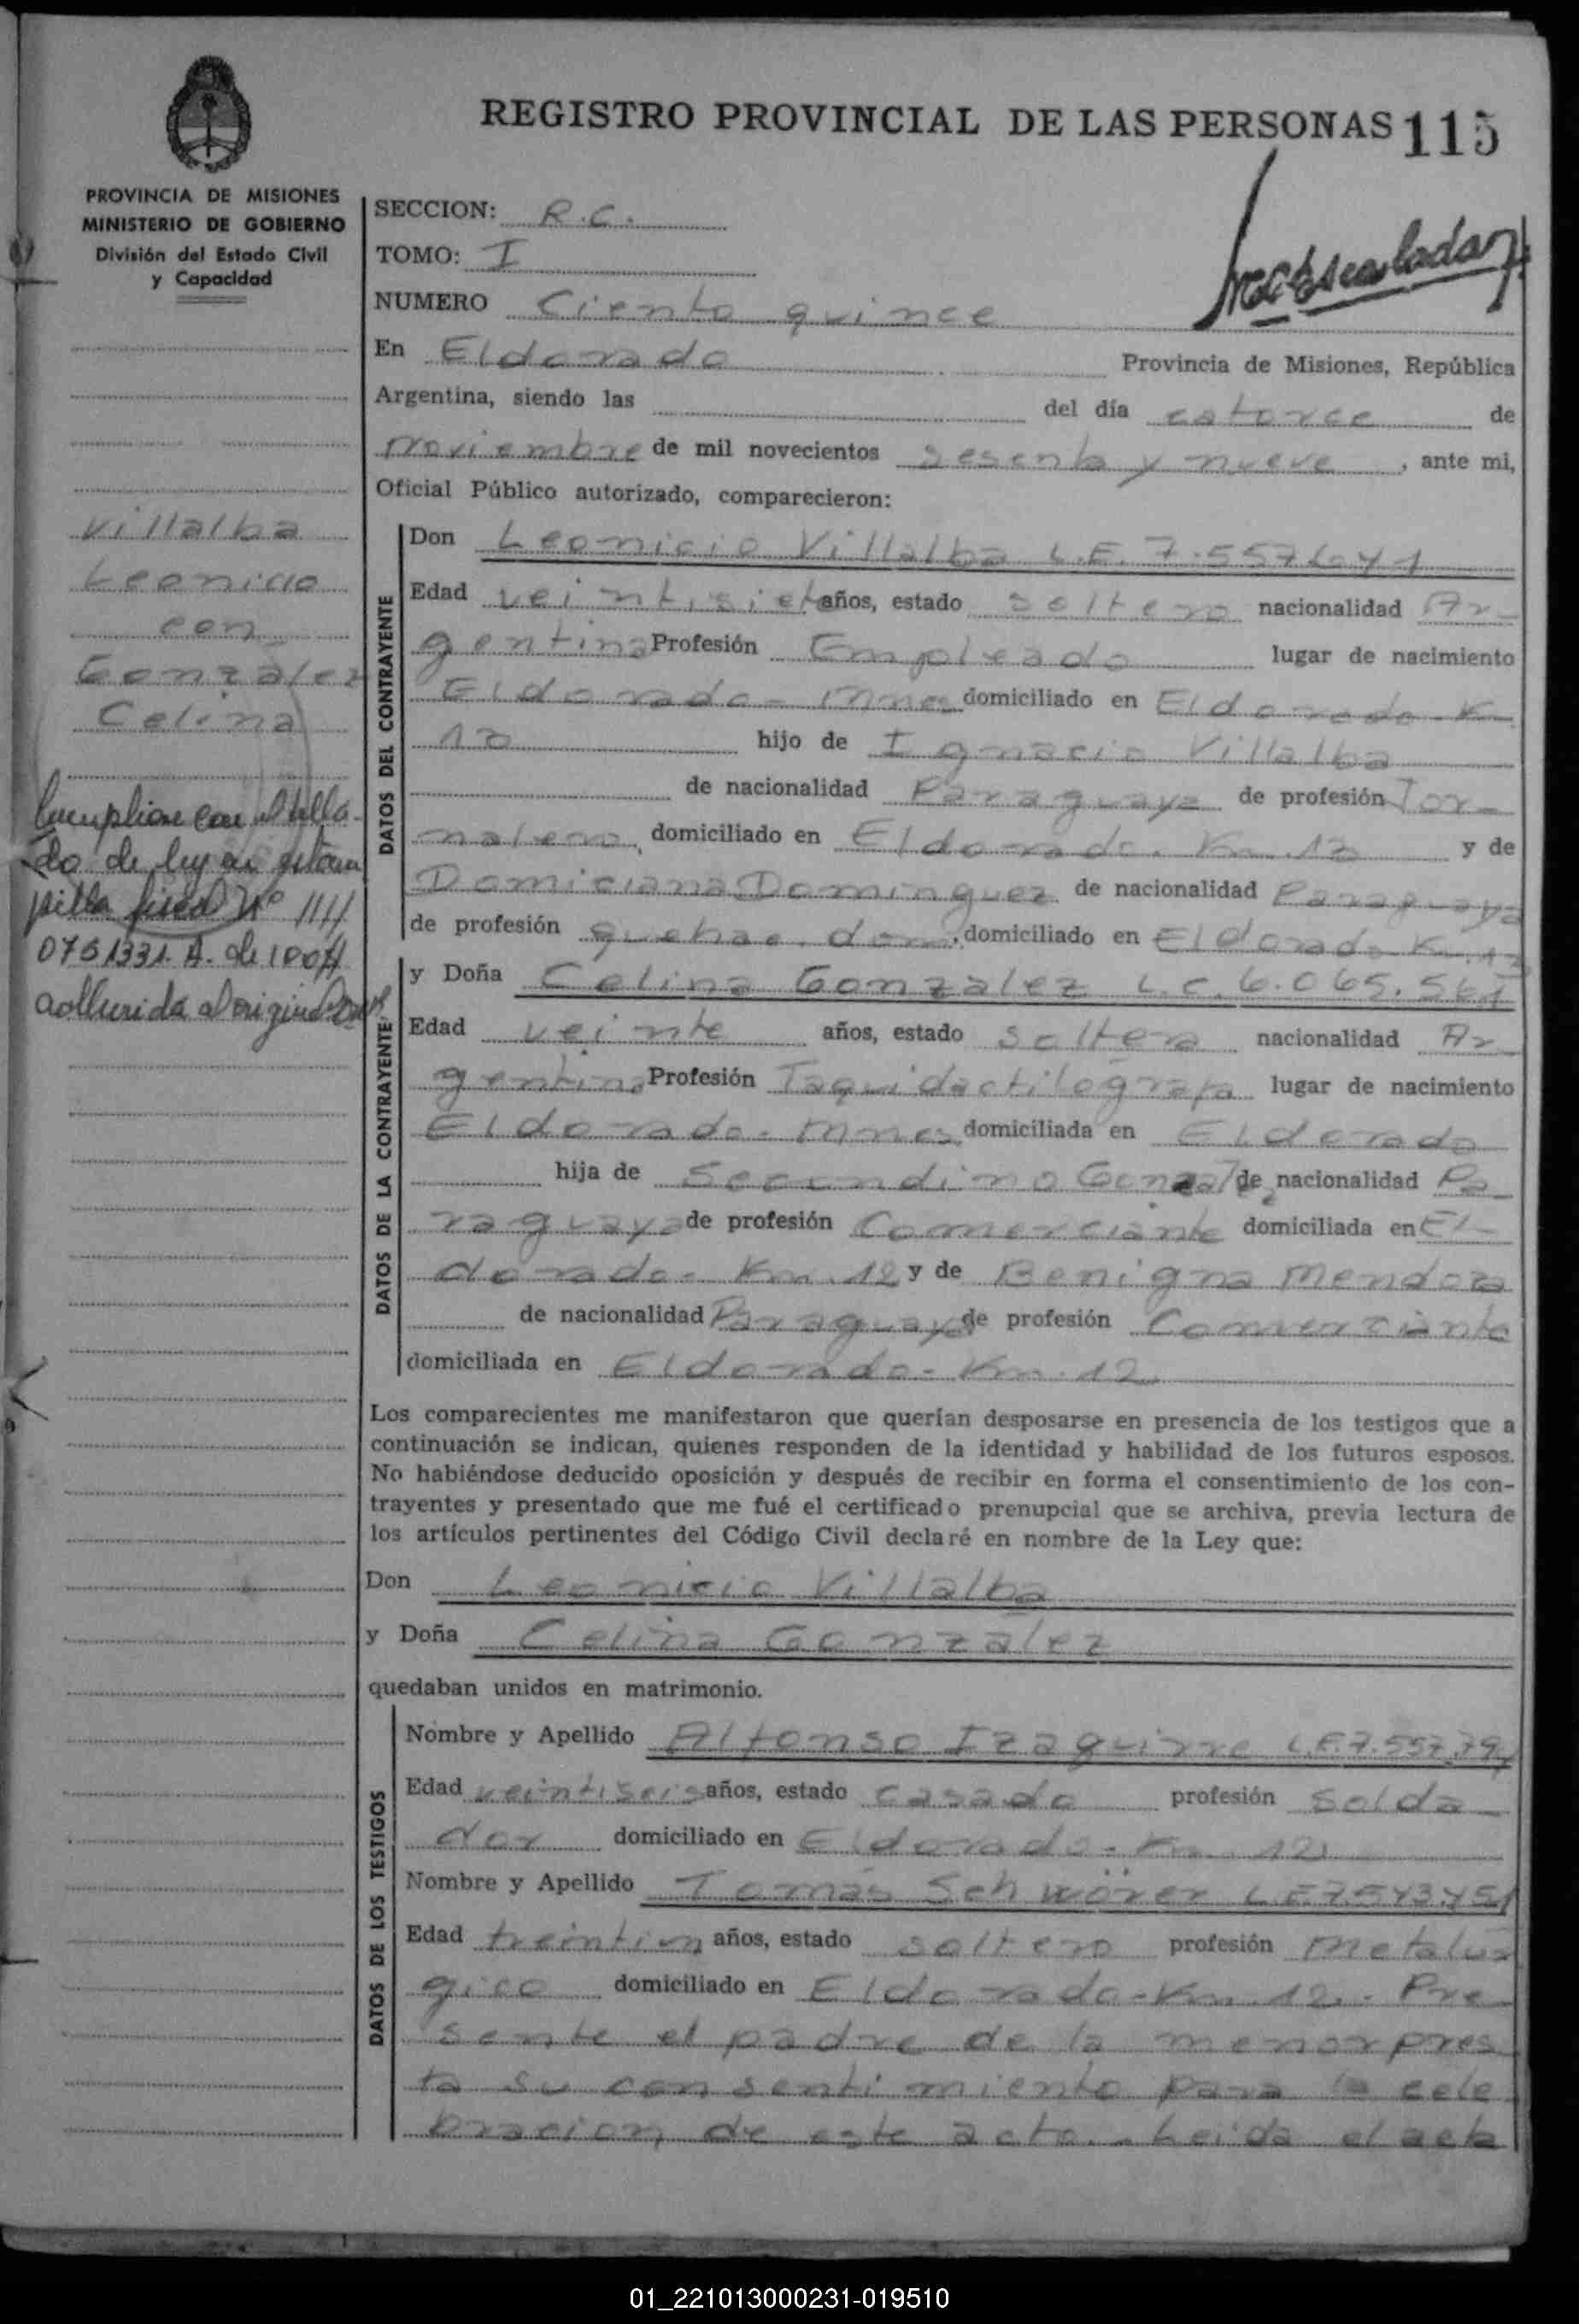 REGISTRO PROVINCIAL DE LAS PERSONAS 115
PROVINCIA DE MISIONES
MINISTERIO DE GOBIERNO
División del Estado Civil
y Capacidad
SECCION: R.C.
TOMO: I
NUMERO Ciento quince
En Eldorado Provincia de Misiones, República
Argentina, siendo las del día catorce de
noviembre de mil novecientos sesenta y nueve, ante mi,
Oficial Público autorizado, comparecieron:
Villalba
Leonicio
con
González
Celina
Cumplion con el sella-
do de ley en estam
pilla fiscal Nº
0751331 A. de 100
adherida al original
DATOS DEL CONTRAYENTE
Don Leonicio Villalba L.E. 7.557.641
Edad veintisiete años, estado soltero nacionalidad Ar-
gentina Profesión Empleado lugar de nacimiento
Eldorado - Mnes domiciliado en Eldorado - K
12 hijo de Ignacio Villalba
de nacionalidad Paraguaya de profesión Jor-
nalero, domiciliado en Eldorado. Km. 12 y de
Domiciana Dominguez de nacionalidad Paraguaya
de profesión quehac. dom., domiciliado en Eldorado Km. 12
DATOS DE LA CONTRAYENTE
y Doña Celina Gonzalez L.C. 6.065.561
Edad veinte años, estado soltera nacionalidad Ar-
gentina Profesión Taquidactilógrafa lugar de nacimiento
Eldorado - Mnes domiciliada en Eldorado
hija de Secundino Gonzalez de nacionalidad Pa-
raguaya de profesión Comerciante domiciliada en El-
dorado - Km. 12 y de Benigna Mendoza
de nacionalidad Paraguaya de profesión Comerciante
domiciliada en Eldorado - Km. 12
Los comparecientes me manifestaron que querían desposarse en presencia de los testigos que a
continuación se indican, quienes responden de la identidad y habilidad de los futuros esposos.
No habiéndose deducido oposición y después de recibir en forma el consentimiento de los con-
trayentes y presentado que me fué el certificado prenupcial que se archiva, previa lectura de
los artículos pertinentes del Código Civil declaré en nombre de la Ley que:
Don Leonicio Villalba
y Doña Celina Gonzalez
quedaban unidos en matrimonio.
DATOS DE LOS TESTIGOS
Nombre y Apellido Alfonso Izaguirre L.E. 7.557.79
Edad veintiseis años, estado casado profesión Solda-
dor domiciliado en Eldorado - Km. 12
Nombre y Apellido Tomás Schwörer L.E 7.543.451
Edad treintiun años, estado soltero profesión metalur
gico domiciliado en Eldorado - Km. 12. - Pre
sente el padre de la menor pres
ta su consentimiento para la cele
bracion de este acto. - Leida el acta
01_221013000231-019510